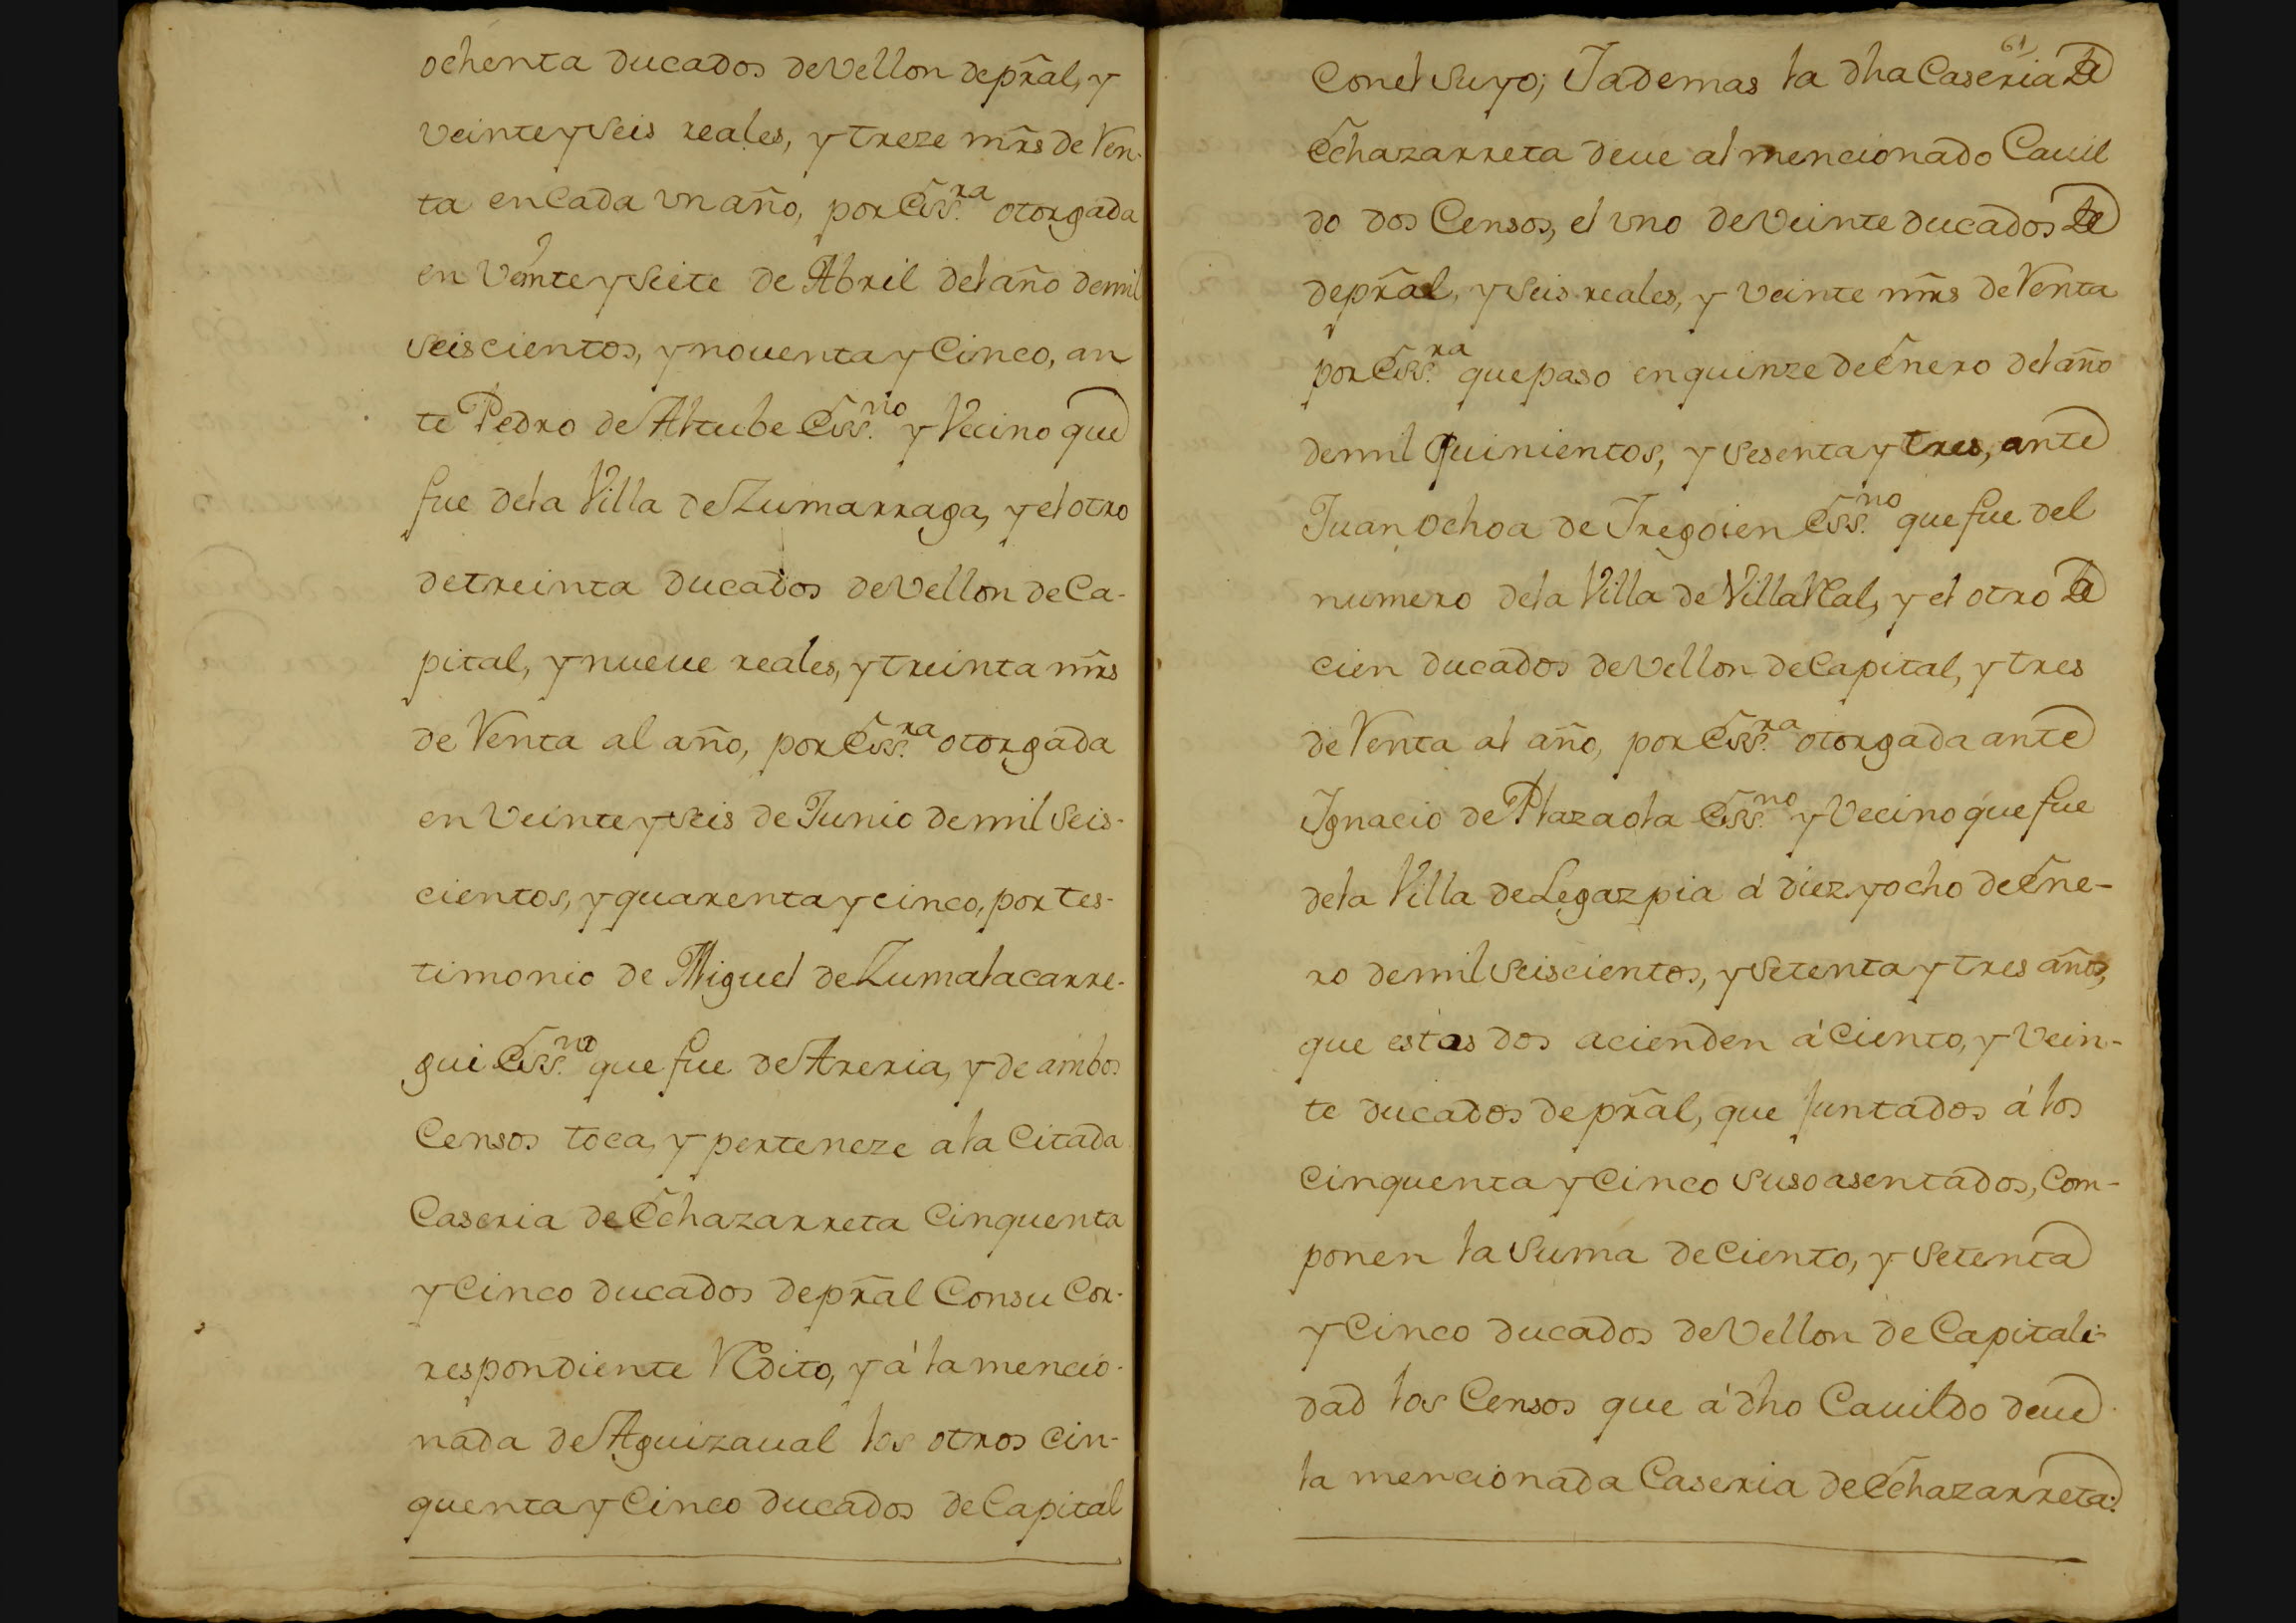 ochenta ducados de vellon de prãl, y
veinte y seis reales, y treze mr̃s de Ren-
ta en Cada vn año, por Ess.ra otorgada
en Veinte y Siete de Abril del año de mil
seiscientos, y nouenta y Cinco, an
te Pedro de Altube Ess.no y Vecino que
fue de la Villa de Zumarraga, y el otro
de treinta ducados de Vellon de Ca-
pital, y nueue reales, y treinta mr̃s
de Renta al año, por Ess.ra otorgada
en Veinte y seis de Junio de mil seis-
cientos, y quarenta y cinco, por tes-
timonio de Miguel de Zumalacarre-
gui Ess.no que fue de Areria, y de ambos
Censos toca, y perteneze a la Citada
Caseria de Echazarreta Cinquenta
y Cinco ducados de prãl Con su Cor-
respondiente Redito, y á la mencio-
nada de Aguizaual los otros Cin-
quenta y Cinco ducados de Capital
61
Con el suyo; Y ademas la dha Caseria de
Echazarreta deue al mencionado Cauil
do dos Censos, el vno de Veinte ducados de
de prãl, y seis reales, y veinte mr̃s de Renta
por Ess.ra que paso en quinze de Enero del año
de mil quinientos, y sesenta y tres, ante
Juan Ochoa de Yregoien Ess.no que fue del
numero de la Villa de Villa Real, y el otro de
cien ducados de Vellon de Capital, y tres
de Renta al año, por Ess.ra otorgada ante
Ygnacio de Plazaola Ess.no y Vecino que fue
de la Villa de Legazpia á diez y ocho de Ene-
ro de mil seiscientos, y setenta y tres años,
que estas dos acienden á Ciento, y Vein-
te ducados de prãl, que Juntados á los
Cinquenta y Cinco suso asentados, Com-
ponen la Suma de Ciento, y Setenta
y Cinco ducados de Vellon de Capitali-
dad los Censos que á dho Cauildo deue
la mencionada Caseria de Echazarreta: